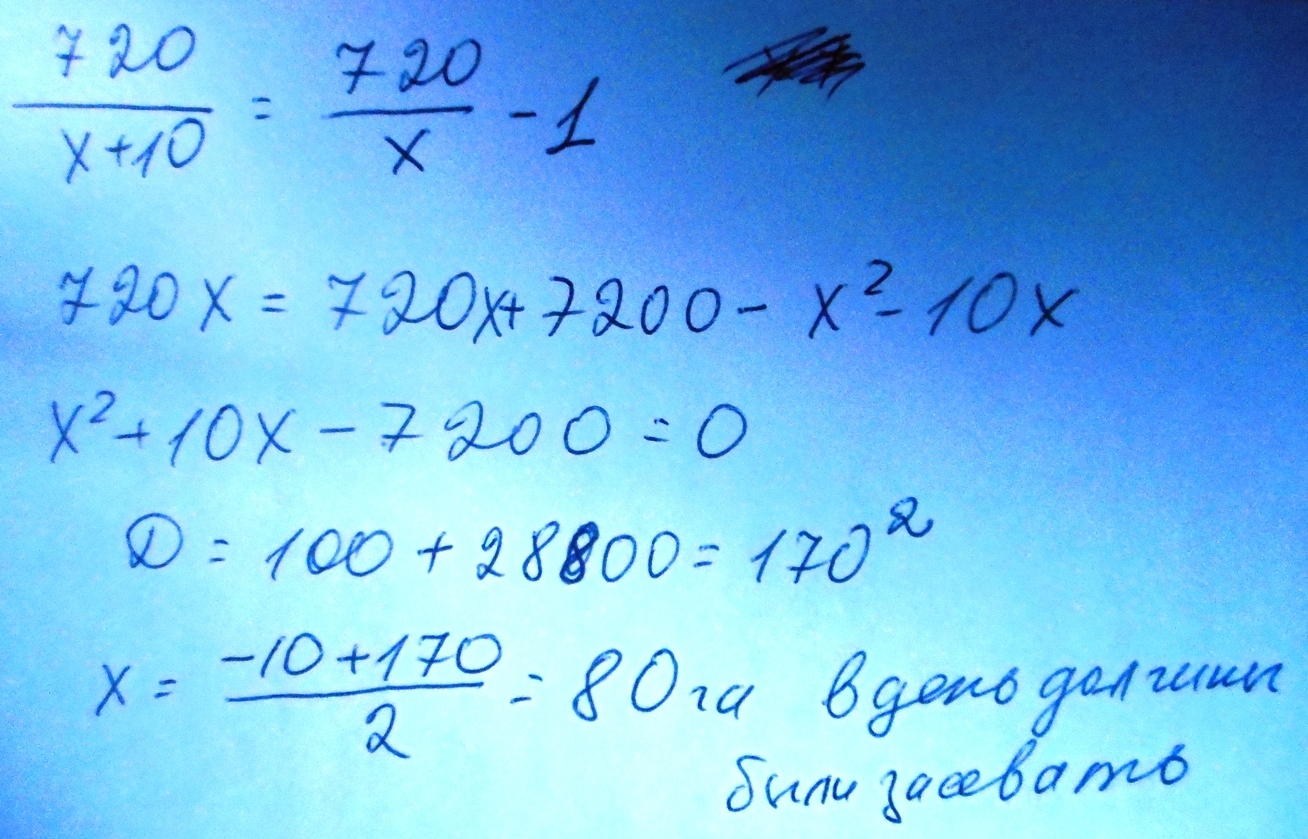 720/(x+10) = 720/x - 1
720x = 720x + 7200 - x² - 10x
x² + 10x - 7200 = 0
D = 100 + 28800 = 170²
x = (-10+170)/2 = 80 га в день должны
были засевать